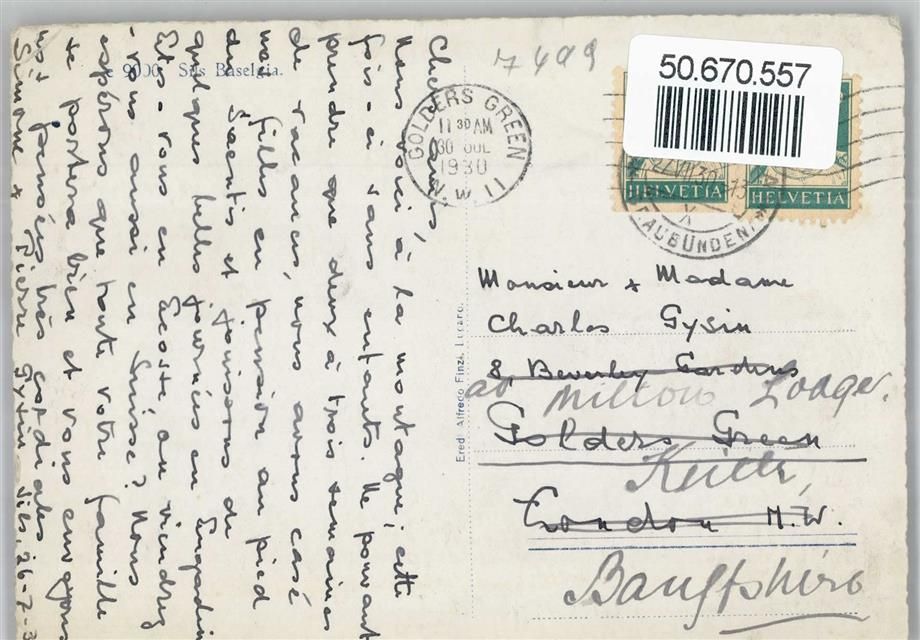 7499
e 9000 Sils Baselgia.
50.670.557
GOLDERS GREEN
11 30 AM
30 JUL
1930
N.W.11
HELVETIA
HELVETIA
Chers amis,
Nous voici à la montagne, cette
fois-ci sans enfants. Ne pouvant
prendre que deux à trois semaines
de vacances, nous avons casé
nos filles en pension au pied
du Saentis et jouissons de
quelques belles journées en Engadine
Etes-vous en Ecosse ou viendrez
-vous aussi en Suisse? Nous
espérons que toute votre famille
se portera bien et vous envoyons
nos pensées très cordiales
Simone & Pierre Gysin Sils, 26-7-3
Ered. Alfredo Finzi, Lugano.
Monsieur & Madame
Charles Gysin
8, Beverley Gardens
at Milton Lodge.
Golders Green
Keith,
London N.W.
Banffshire